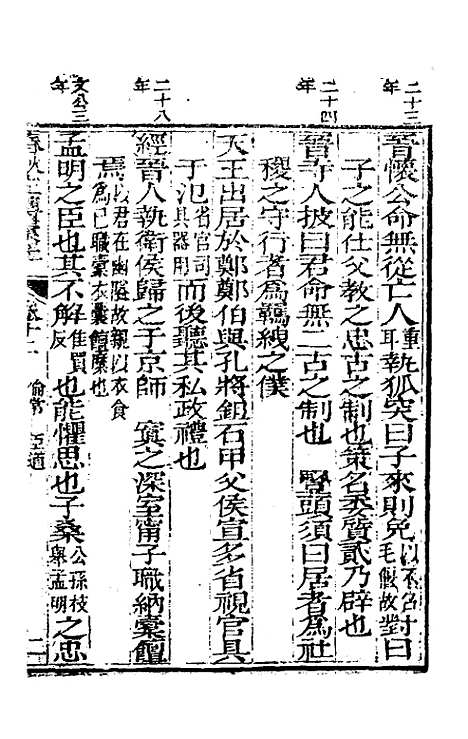 二十三年
晉懷公命無從亡人重耳執狐突曰子來則免以不召毛偃故對曰
子之能仕父教之忠古之制也策名委質貳乃辟也
二十四年
晉寺人披曰君命無二古之制也　豎頭須曰居者爲社
稷之守行者爲羈絏之僕
天王出居於鄭鄭伯與孔將鉏石甲父侯宣多省視官具
于氾省官司具器用而後聽其私政禮也
二十八年
經晉人執衛侯歸之于京師　寘之深室甯子職納橐饘
焉以君在幽隘故親以衣食爲己職橐衣囊饘糜也
文公三年
孟明之臣也其不解佳買反也能懼思也子桑公孫枝舉孟明之忠
卷十二　倫常　臣道　二